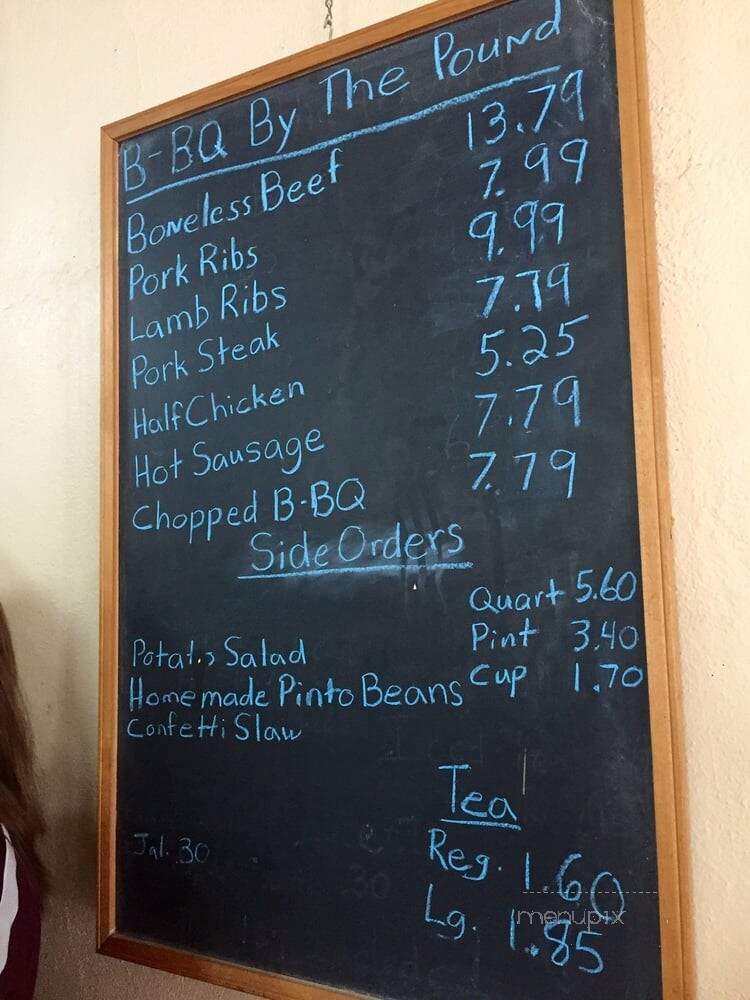 B-BQ By The Pound
Boneless Beef 13.79
Pork Ribs 7.99
Lamb Ribs 9.99
Pork Steak 7.79
Half Chicken 5.25
Hot Sausage 7.79
Chopped B-BQ 7.79
Side Orders
Quart 5.60
Pint 3.40
Cup 1.70
Potato Salad
Homemade Pinto Beans
Confetti Slaw
Tea
Reg. 1.60
Lg. 1.85
Jal. 30
menupix